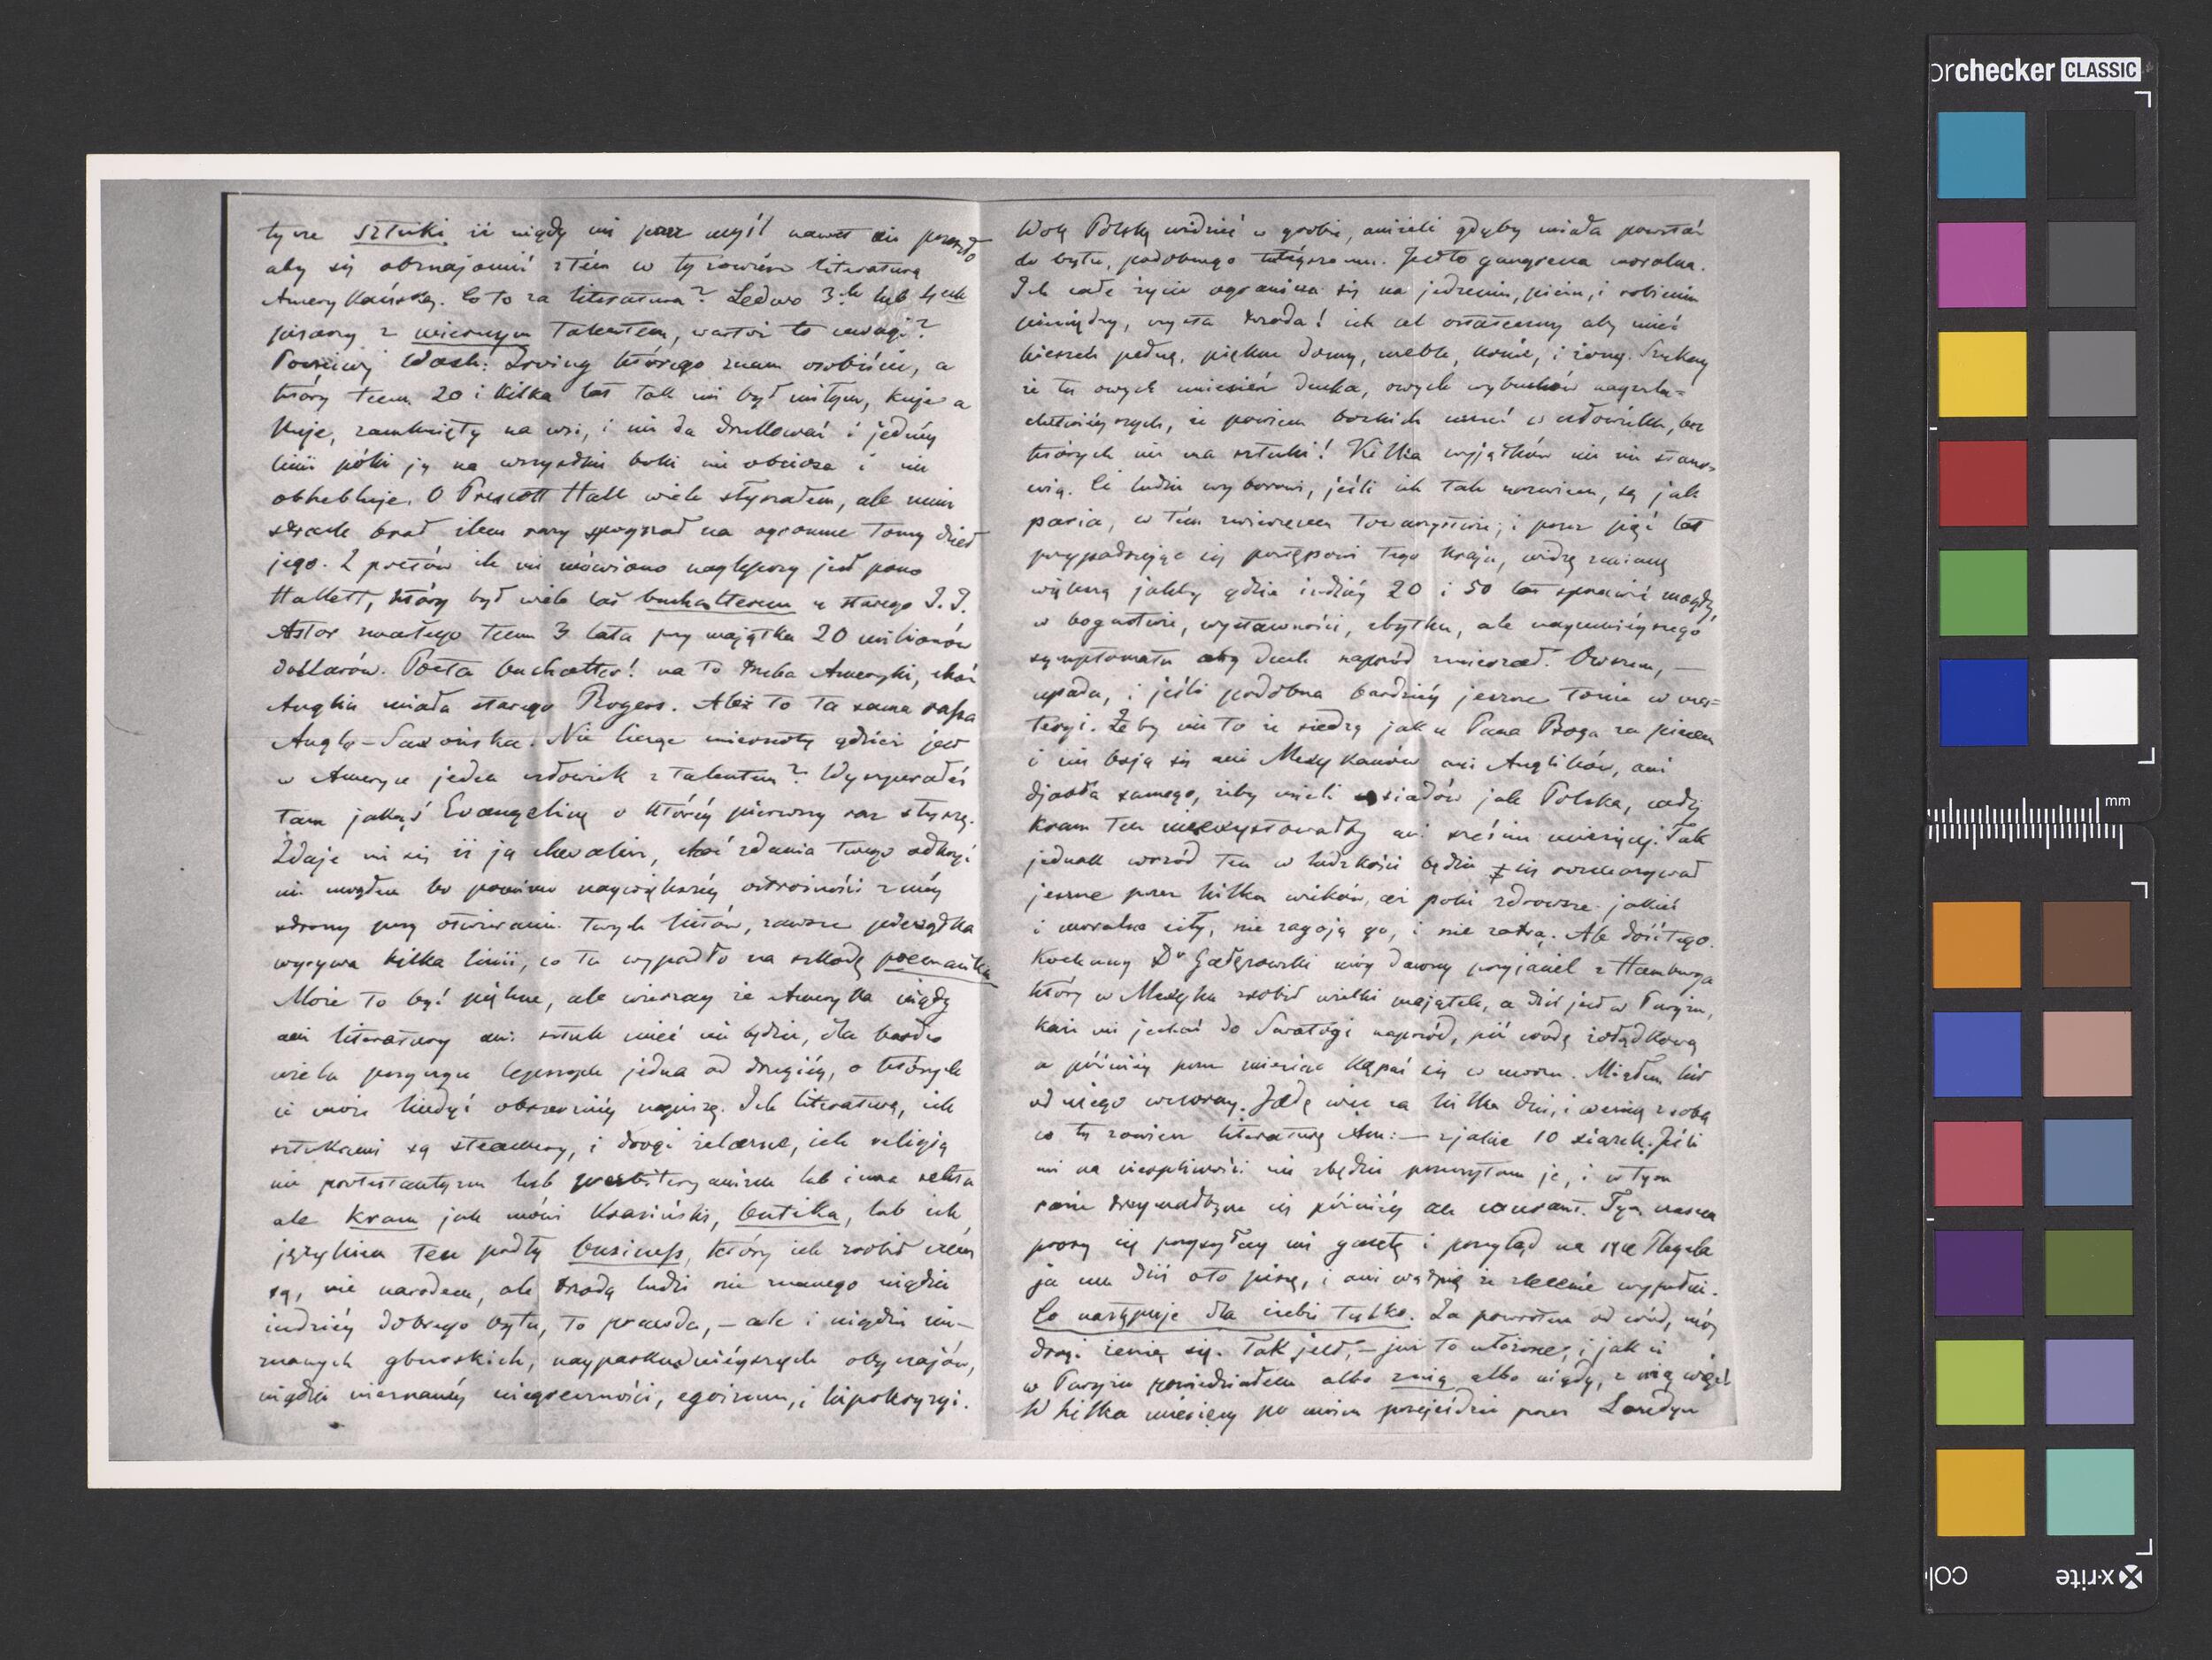 tycze sztuki iż nigdy mi przez myśl nawet nie przeszło
aby się obznajomić z tém co ty zowiesz literaturą
Amerykańską. Co to za literatura? Ledwo 3.ch lub 4ech
pisarzy z miernym talentem, wartoż to uwagi?
Poczciwy Wash: Irving którego znam osobiście, a
który temu 20 i kilka lat tak mi był miłym, kuje a
kuje, zamknięty na wsi, i nie da drukować i jednéj
linii póki jej na wszystkie boki nie obciosa i nie
obhebluje. O Prescott Hall wiele słyszałem, ale mnie
strach brał ilem razy spojrzał na ogromne tomy dzieł
jego. Z poetów ile mi mówiono najlepszy jest pono
Hallett, który był wiele lat buchalterem u starego I. I.
Astor zmarłego temu 3 lata przy majątku 20 milionów
dollarów. Poeta buchalter! na to trzeba Ameryki, choć
Anglia miała starego Rogers. Aleź to ta sama rassa
Anglo-Saxońska. Nie licząc mierności gdzież jest
w Ameryce jeden człowiek z talentem? Wyszperałeś
tam jakąś Evangelinę o któréj pierwszy raz słyszę.
Zdaje mi się iż ją chwalisz, choć zdania twego odkryć
nie mogłem bo pomimo największéj ostrożności z méj
strony przy otwieraniu twych listów, zawsze pieczątka
wyrywa kilka linii, co tu wypadło na szkodę poemaciku
Może to być piękne, ale wierzaj że Ameryka nigdy
ani literatury ani sztuk mieć nie będzie, dla bardzo
wielu przyczyn lepszych jedna od drugiéj, o których
ci może kiedyś obszerniéj napiszę. Ich literaturą, ich
sztukami są steamery, i drogi żelazne, ich religią
nie protestantyzm lub presbiteryanizm lub inna sekta
ale kram jak mówi Krasiński, butika, lub ich
językiem ten podły business, który ich zrobił czém
są, nie narodem, ale trzodą ludzi nie znanego nigdzie
indziéj dobrego bytu, to prawda, — ale i nigdzie nie-
znanych gburskich, najpaskudniéjszych obyczajów,
nigdzie nieznanéj niegrzeczności, egoizmu, i hipokryzyi.
Wolę Polskę widzieć w grobie, aniżeli gdyby miała powstać
do bytu, podobnego tutéjszemu. Jestto gangrena moralna.
Ich całe życie ogranicza się na jedzeniu, piciu, i robieniu
pieniędzy, czysta trzoda! ich cel ostateczny aby mieć
kieszeń pełną, piękne domy, meble, konie, i żony. Szukaj
że tu owych uniesień ducha, owych wybuchów najszla=
chetniéjszych, że powiem boskich uczuć w człowieku, bez
których nie ma sztuki! Kilka wyjątków nic nie stano-
wią. Ci ludzie wyborowi, jeśli ich tak nazwiem, są jak
paria, w tém zwierzęcem towarzystwie; i przez pięć lat
przypatrując się postępowi tego kraju, widzę zmianę
większą jakby gdzie indziéj 20 i 50 lat sprawić mogły,
w bogactwie, wystawności, zbytku, ale najmniéjszego
symptomatu aby duch naprzód zmierzał. Owszem, —
upada, i jeśli podobna bardziéj jeszcze tonie w ma=
teryi. Żeby nie to że siedzą jak u Pana Boga za piecem
i nie boją się ani Mexykanów ani Anglików, ani
djabła samego, żeby mieli sąsiadów jak Polska, cały
kram ten nieexystowałby ani sześciu miesięcy. Tak
jednak wrzód ten w ludzkości będzie się rozszarzywał
jeszcze przez kilka wieków, aż póki zdrowsze jakieś
i moralne siły, nie zagoją go, i nie zatrą. Ale dość tego.
Kochany Dr Gałęzowski mój dawny przyjaciel z Hamburga
który w Mexyku zrobił wielki majątek, a dziś jest w Paryżu,
każe mi jechać do Saratogi naprzód, pić wodę żołądkową
a późniéj przez miesiąc kąpać się w morzu. Miałem list
od niego wczoraj. Jadę więc za kilka dni, i wezmę z sobą
co ty zowiesz literaturę Am: — z jakie 10 xiążek. Jeśli
mi na cierpliwości nie zbędzie przeczytam je, i w tym
razie
prosz się przyszłéj mi gazetę i pogląd na rzecz Hegela
ja mu dziś oto piszę, i ani wątpię że zlecenie wypełni.
Co następuje dla ciebie tylko. Za powrotem od wód, mój
drogi żenię się. Tak jest, — już to ułożone, i jak ci
w Paryżu powiedziałem albo z nią albo nigdy, z nią więc!
W kilka miesięcy po moim przejeździe przez Londyn